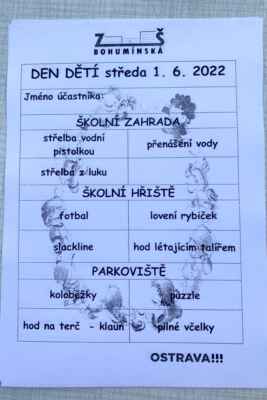 Z Š
BOHUMÍNSKÁ
DEN DĚTÍ středa 1. 6. 2022
Jméno účastníka:
ŠKOLNÍ ZAHRADA
střelba vodní
pistolkou
přenášení vody
střelba z luku
ŠKOLNÍ HŘIŠTĚ
fotbal
lovení rybiček
slackline
hod létajícím talířem
PARKOVIŠTĚ
koloběžky
puzzle
hod na terč - klaun
pilné včelky
OSTRAVA!!!